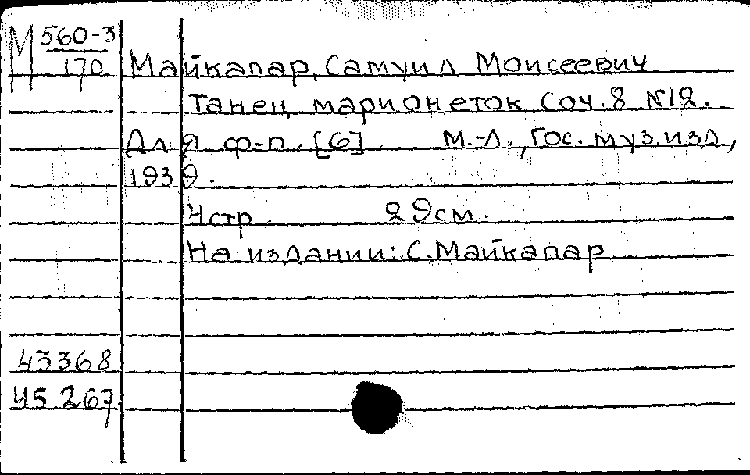 М 560-3
170
Майкапар, Самуил Моисеевич
Танец марионеток Соч. 8 №12.
Для ф-п. [б] М.-Л., Гос. муз. изд.,
1939.
4стр 29см.
На издании: С. Майкапар
43368
45267